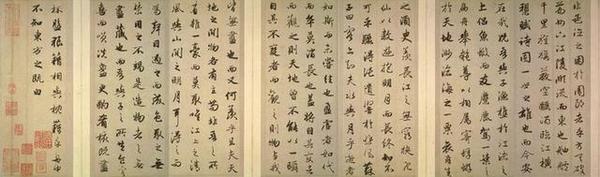 之困於周郎者乎方其破
荊州下江陵順流而東也舳艫
千里旌旗蔽空釃酒臨江橫
槊賦詩固一世之雄也而今安
在哉況吾與子漁樵於江渚之
上侶魚蝦而友麋鹿駕一葉之
扁舟舉匏樽以相屬寄蜉蝣
於天地渺滄海之一粟哀吾生
之須臾羨長江之無窮挾飛
仙以遨遊抱明月而長終知不
可乎驟得託遺響於悲風蘇
子曰客亦知夫水與月乎逝者
如斯而未嘗往也盈虛者如代
而卒莫消長也蓋將自其變者
而觀之則天地曾不能以一瞬
自其不變者而觀之則物與我
皆無盡也而又何羨乎且夫天
地之間物各有主苟非吾之所
有雖一毫而莫取惟江上之清
風與山間之明月耳得之而
為聲目遇之而成色取之無
禁用之不竭是造物者之無
盡藏也而吾與子之所共食客
喜而笑洗盞更酌肴核既盡
杯盤狼籍相與枕藉乎舟中
不知東方之既白